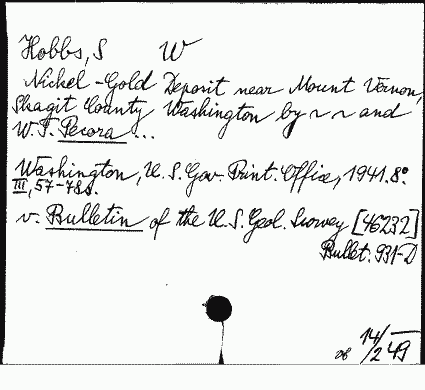 Hobbs, S W
Nickel-Gold Deposit near Mount Vernon,
Skagit County Washington by ~ ~ and
W.T. Pecora ...
Washington, U.S. Gov. Print. Office, 1941. 8°.
III, 57-78 s.
v. Bulletin of the U.S. Geol. Survey [46232]
Bullet. 931-D
14/2 49